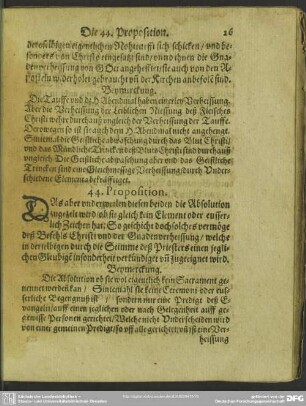 Die 44. Proposition. 26
derselbigen eigentlichen Nohturfft sich schicken / vnd be-
sonders von Christo eingesetzt sind / vnnd ihnen die Gna-
denverheissung von GOtt angehefftet / die auch von den A-
posteln w. derholet gebraucht vñ der Kirchen anbefohl. sind.
Beymerckung.
Die Tauffe vnd dz H. Abendmal haben einerley Verheissung.
Aber die Verheissung der Leiblichen Niessung deß Fleisches
Christi were durchauß vngleich der Verheissung der Tauffe.
Derowegen so ist sie auch dem H. Abendmal nicht angehengt.
Sintemal die Geistliche abwaschung durch das Blut Christi
vnd das Mündliche Trincken deß Bluts Christi sind durchauß
vngleich. Die Geistliche abwaschung aber vnd das Geistliche
Trincken sind eine Gleichmessige Verheissung / durch Vnder-
schiedene Elementa bekräfftiget.
44. Proposition.
DAs aber vnderweilen diesen beiden die Absolution
zugesetzt wird / ob sie gleich kein Element oder eusser-
lich Zeichen hat: So geschicht doch solches vermöge
deß Befelchs Christi vnd der Gnadenverheissung / welche
in derselbigen durch die Stimme deß Priesters einem jegli-
chen Gleubigē in sonderheit verkündiget vñ zugeeignet wird.
Beymerckung.
Die Absolution ob sie wol eigentlich kein Sacrament ge-
nennet werden kan / Sintemal sie keine Ceremoni oder eus-
serliche Begengnuß ist / sondern nur eine Predigt deß E-
vangelien / auff einen jeglichen oder nach Gelegenheit auff ge-
gewisse Personen gerichtet / Welche nicht Vnderscheiden wird
von einer gemeinen Predigt / so off all gerichtet / vñ ist eine Ver-
heissung